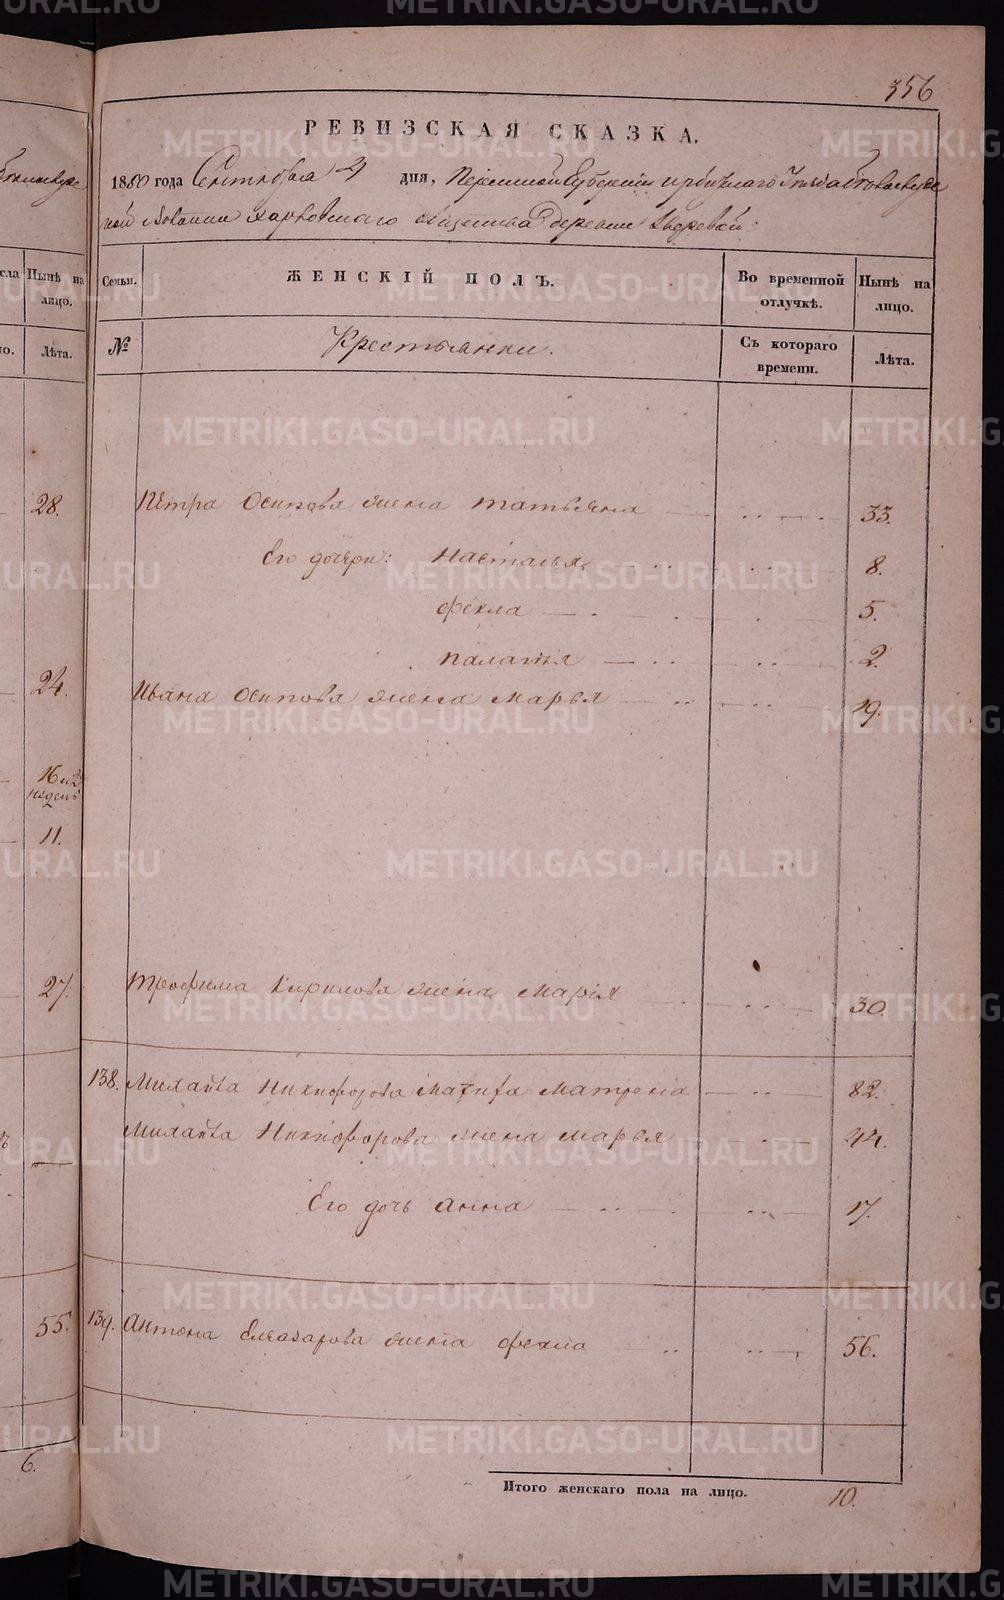 METRIKI.GASO-URAL.RU
356
РЕВИЗСКАЯ СКАЗКА.
1850 года Сентября 4 дня, Пермской Губернии Ирбитскаго Уезда
волости Харловскаго общества деревни Зверевой
Семьи. ЖЕНСКІЙ ПОЛЪ. Во временной отлучкѣ. Нынѣ на лицо.
№ Крестьянки. Съ котораго времени. Лѣта.
Петра Осипова жена Татьяна 33.
Его дочери: Настасья 8.
Фекла 5.
Палагья 2.
Ивана Осипова жена Марья 19.
Трофима Кирилова жена Марія 30.
138. Михайла Никифорова Матрена 82.
Михайла Никифорова жена Марья 44.
Его дочь Анна 17.
139. Антона Елеазарова жена Фекла 56.
Итого женскаго пола на лицо. 10.
Нынѣ на лицо.
Лѣта.
28.
24.
16 и 2
недель
11.
27.
55.
6.